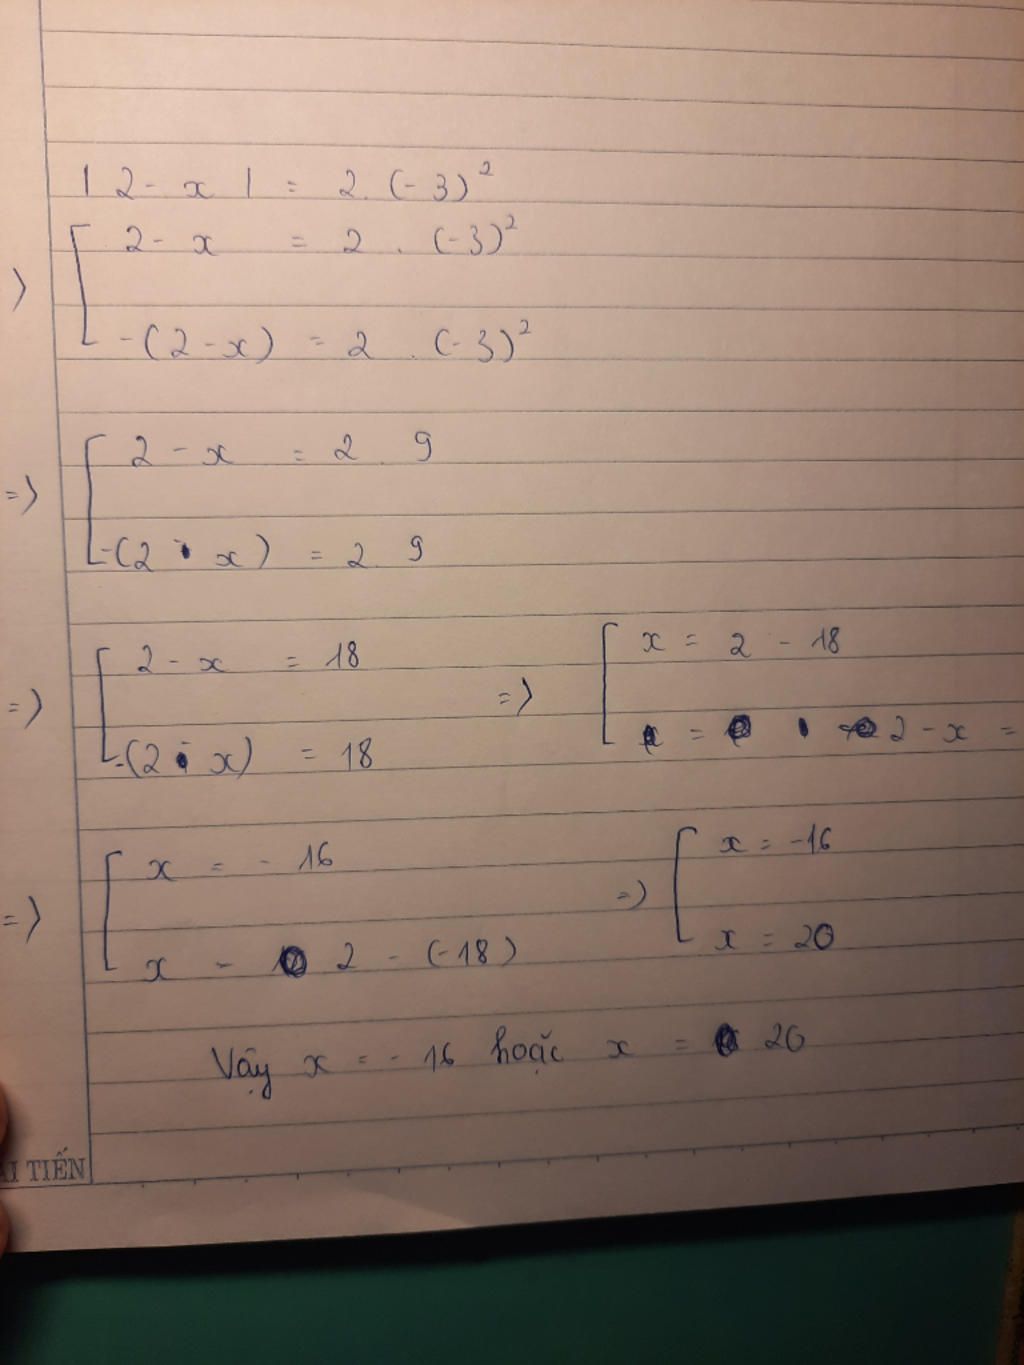 | 2 - x | = 2 . (-3)²
=> [ 2 - x = 2 . (-3)²
-(2 - x) = 2 . (-3)²
=> [ 2 - x = 2 . 9
-(2 - x) = 2 . 9
=> [ 2 - x = 18
-(2 - x) = 18
=> [ x = 2 - 18
2 - x =
=> [ x = - 16
x = 2 - (-18)
=> [ x = -16
x = 20
Vậy x = - 16 hoặc x = 20
ẢI TIẾN